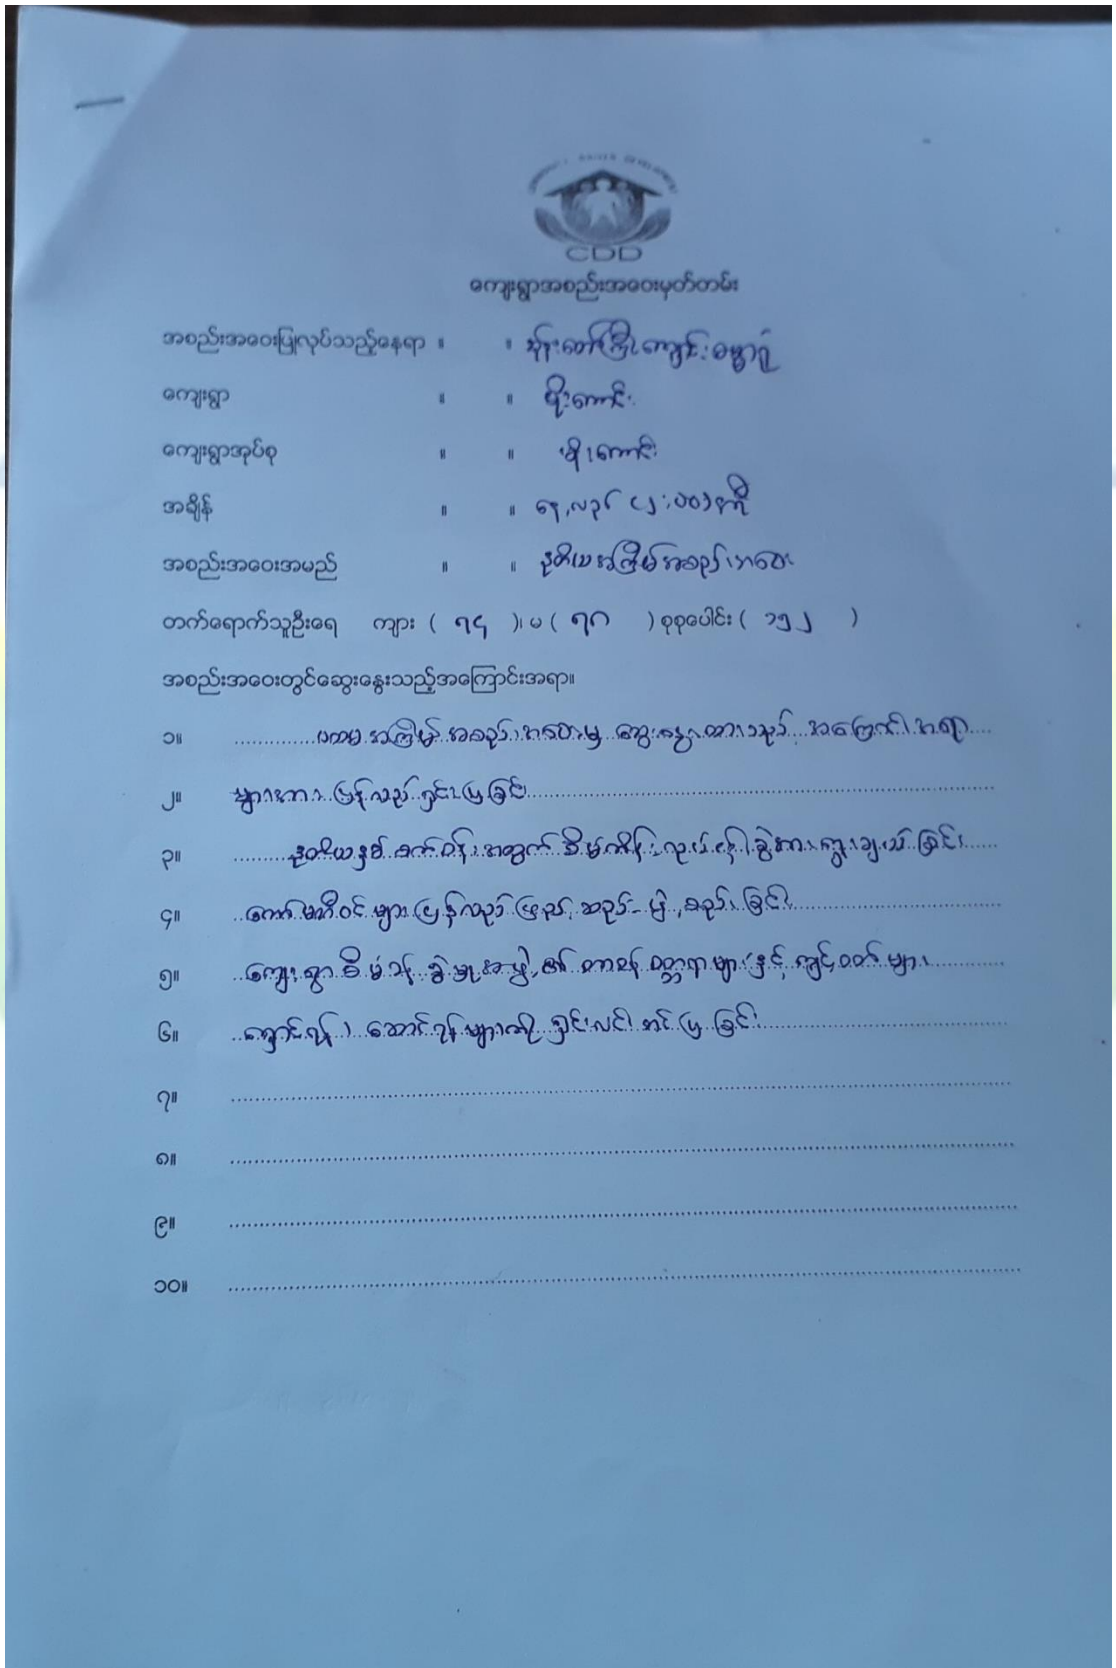 COMMUNITY DRIVEN DEVELOPMENT
CDD
ကျေးရွာအစည်းအဝေးမှတ်တမ်း
အစည်းအဝေးပြုလုပ်သည့်နေရာ ။ ။ ဘုန်းတော်ကြီးကျောင်း ဓမ္မာရုံ
ကျေးရွာ ။ ။
ကျေးရွာအုပ်စု ။ ။
အချိန် ။ ။ နေ့လည်
အစည်းအဝေးအမည် ။ ။ ဒုတိယအကြိမ်အစည်းအဝေး
တက်ရောက်သူဦးရေ ကျား ( ၇၄ )၊ မ ( ) စုစုပေါင်း ( ၁၅၂ )
အစည်းအဝေးတွင်ဆွေးနွေးသည့်အကြောင်းအရာ။
၁။ ပထမအကြိမ် အစည်းအဝေးမှ ဆွေးနွေးထားသည့် အကြောင်းအရာ
၂။ များအား ပြန်လည် ရှင်းပြခြင်း
၃။ ဒုတိယနှစ် စက်ဝန်းအတွက် စီမံကိန်းလုပ်ငန်းခွဲအား ရွေးချယ်ခြင်း
၄။ ကော်မတီဝင်များ ပြန်လည်ဖြည့်ဆည်းဖွဲ့စည်းခြင်း
၅။ ကျေးရွာ စီမံခန့်ခွဲမှုအဖွဲ့၏ တာဝန် ဝတ္တရာများနှင့် ကျင့်ဝတ်များ
၆။ ရှောင်ရန်၊ ဆောင်ရန်များကို ရှင်းလင်းတင်ပြခြင်း
၇။
၈။
၉။
၁၀။